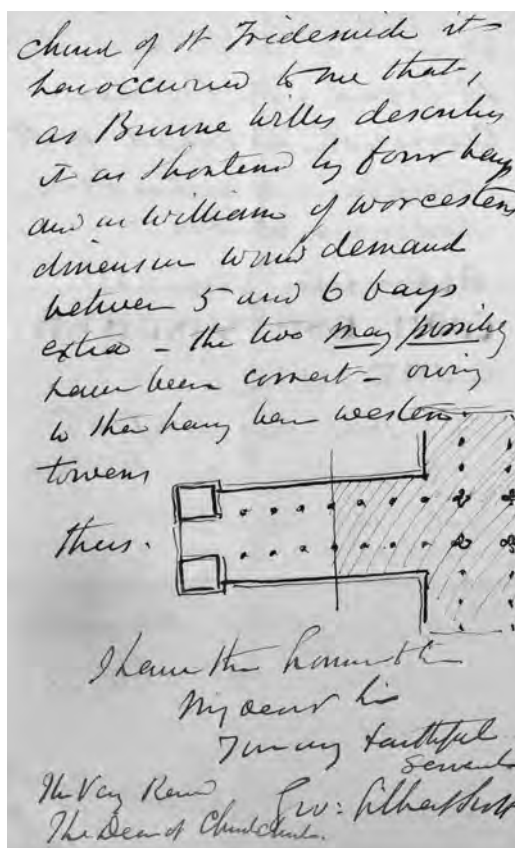 church of St Frideswide it
has occurred to me that,
as Browne Willis describes
it as shortened by four bays
and as William of Worcesters
dimension would demand
between 5 and 6 bays
extra – the two may possibly
have been correct – owing
to there having been western
towers
thus.
I have the honour to be
My dear Sir
Your very faithful
Servant
Geo: Gilbert Scott
The Very Revd
The Dean of Christchurch.